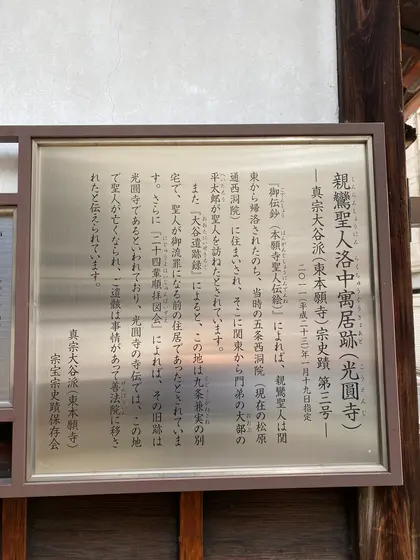 親鸞聖人洛中寓居跡（光圓寺）
―真宗大谷派（東本願寺）宗史蹟 第三号―
二〇一一（平成二十三）年一月十九日指定
『御伝鈔（本願寺聖人伝絵）』によれば、親鸞聖人は関
東から帰洛されたのち、当時の五条西洞院（現在の松原
通西洞院）に住まいされ、そこに関東から門弟の大部の
平太郎が聖人を訪ねたとされています。
また『大谷遺跡録』によると、この地は九条兼実の別
宅で、聖人が御流罪になる前の住居であったとされていま
す。さらに『二十四輩順拝図会』によれば、その旧跡は
光圓寺であるといわれており、光圓寺の寺伝では、この地
で聖人が亡くなられ、ご遺骸は事情があって善法院に移さ
れたと伝えられています。
真宗大谷派（東本願寺）
宗宝宗史蹟保存会